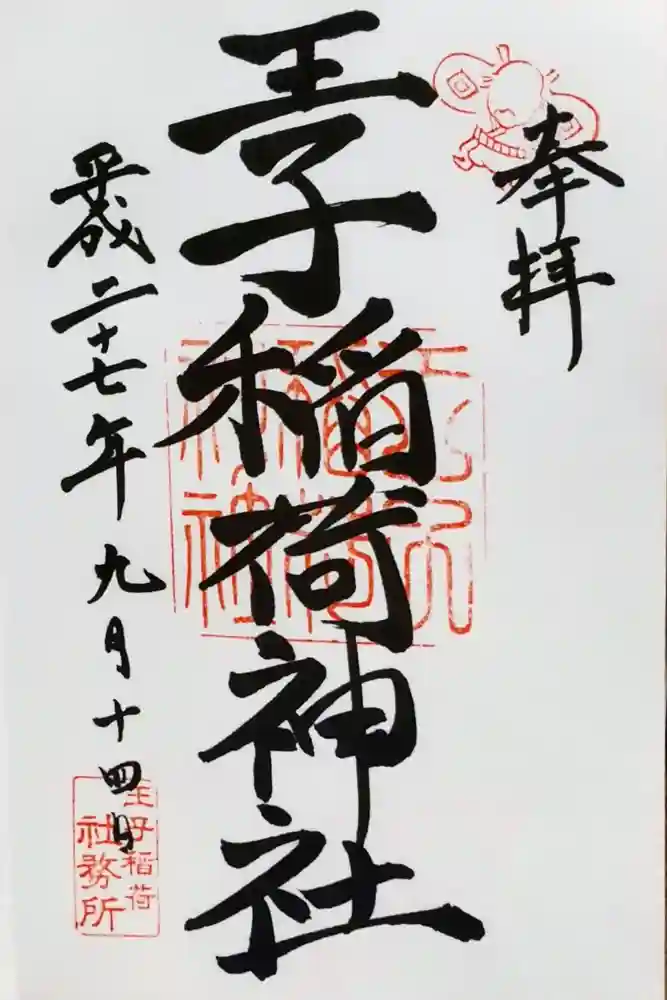 奉拝
王子稲荷神社
平成二十七年九月十四日
王子稲荷
社務所